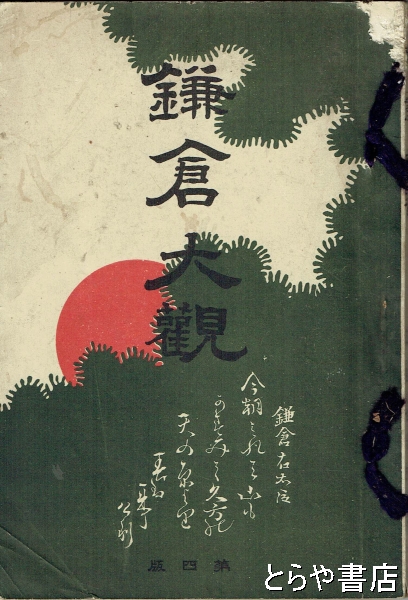 鎌倉大觀
鎌倉右大臣
今朝みれは山も
かすみて久方の
天の原より
春は
来に
けり
第四版
とらや書店